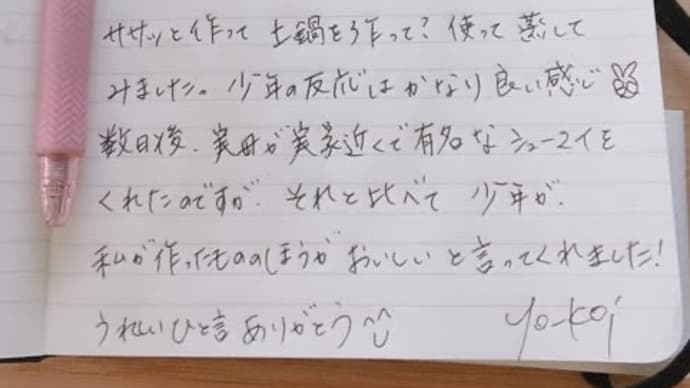 ササッと作って 土鍋を作って? 使って 蒸して
みました。少年の反応はかなり良い感じ
数日後、実母が実家近くで有名なシューマイを
くれたのですが、それと比べて 少年が、
私が作ったもののほうが おいしい と言ってくれました!
うれしいひと言 ありがとう
yo-koi